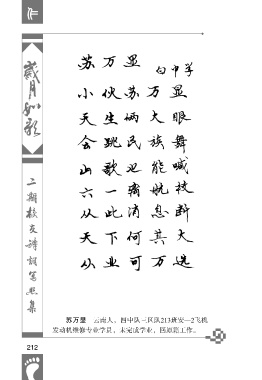 作
岁月如歌
二期校友诗词笔墨集
苏万显
白中学
小伙苏万显
天生俩大眼
会跳民族舞
山歌也能喊
六一痛航校
从此消息断
天下何其大
从业可万选
苏万显 云南人、四中队三区队213班安—2飞机
发动机维修专业学员，未完成学业，回原籍工作。
212